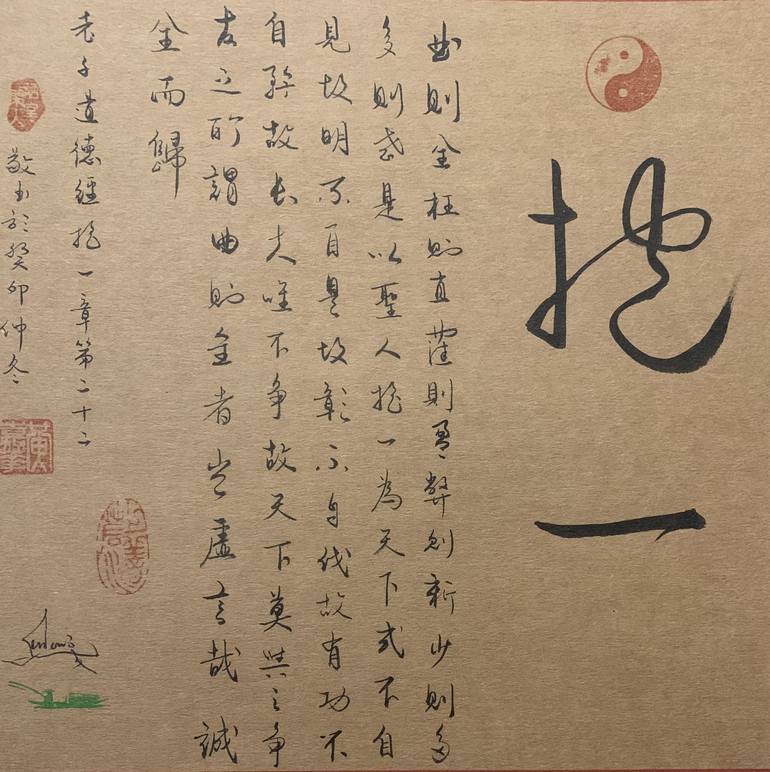 抱一
曲則全枉則直窪則盈弊則新少則得
多則惑是以聖人抱一為天下式不自
見故明不自是故彰不自伐故有功不
自矜故長夫唯不争故天下莫與之争
古之所謂曲則全者豈虛言哉誠
全而歸
老子道德經抱一章第二十二
敬書於癸卯仲冬